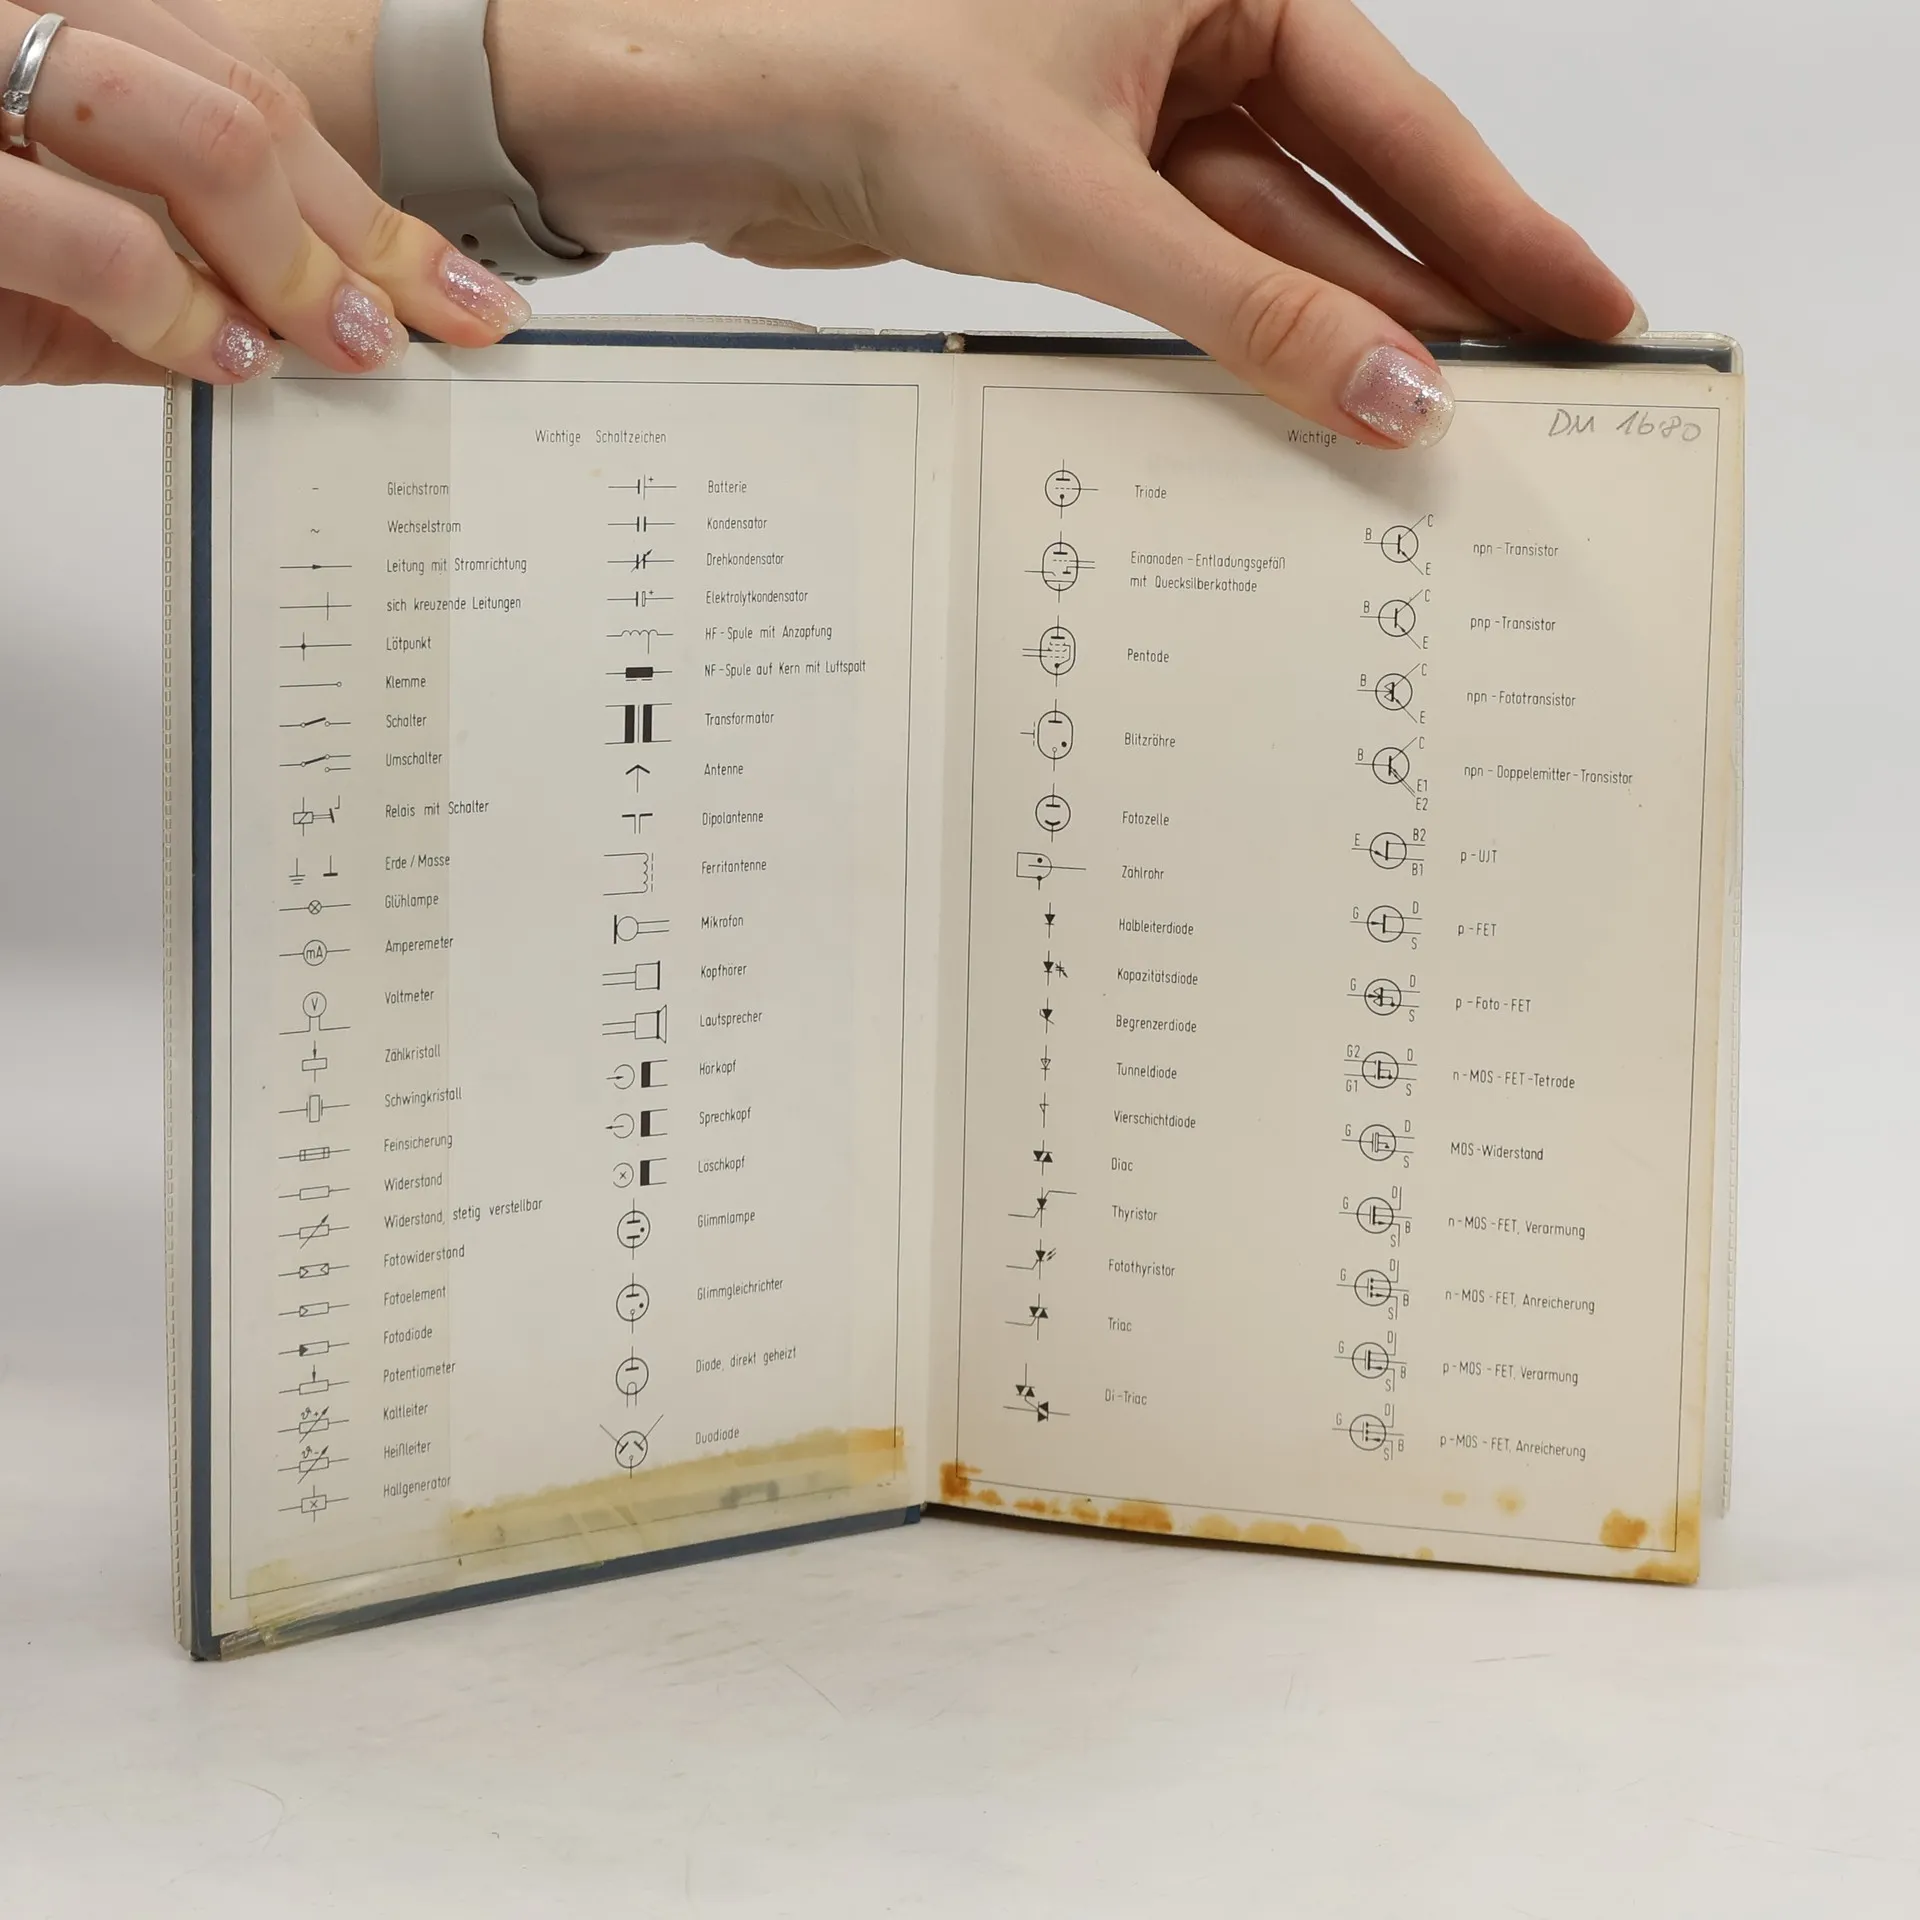 Wichtige Schaltzeichen
–
Gleichstrom
~
Wechselstrom
Leitung mit Stromrichtung
sich kreuzende Leitungen
Lötpunkt
Klemme
Schalter
Umschalter
Relais mit Schalter
Erde / Masse
Glühlampe
mA
Amperemeter
V
Voltmeter
Zählkristall
Schwingkristall
Feinsicherung
Widerstand
Widerstand, stetig verstellbar
Fotowiderstand
Fotoelement
Fotodiode
Potentiometer
ϑ+
Kaltleiter
ϑ-
Heißleiter
x
Hallgenerator
+
Batterie
Kondensator
Drehkondensator
+
Elektrolytkondensator
HF-Spule mit Anzapfung
NF-Spule auf Kern mit Luftspalt
Transformator
Antenne
Dipolantenne
Ferritantenne
Mikrofon
Kopfhörer
Lautsprecher
Hörkopf
Sprechkopf
x
Löschkopf
Glimmlampe
Glimmgleichrichter
Diode, direkt geheizt
Duodiode
DM 16.80
Wichtige
Triode
Einanoden-Entladungsgefäß
mit Quecksilberkathode
Pentode
Blitzröhre
Fotozelle
Zählrohr
Halbleiterdiode
Kapazitätsdiode
Begrenzerdiode
Tunneldiode
Vierschichtdiode
Diac
Thyristor
Fotothyristor
Triac
Di-Triac
B C E
npn-Transistor
B C E
pnp-Transistor
B C E
npn-Fototransistor
B C E1 E2
npn-Doppelemitter-Transistor
E B2 B1
p-UJT
G D S
p-FET
G D S
p-Foto-FET
G2 D G1 S
n-MOS-FET-Tetrode
G D S
MOS-Widerstand
G D B S
n-MOS-FET, Verarmung
G D B S
n-MOS-FET, Anreicherung
G D B S
p-MOS-FET, Verarmung
G D B S
p-MOS-FET, Anreicherung